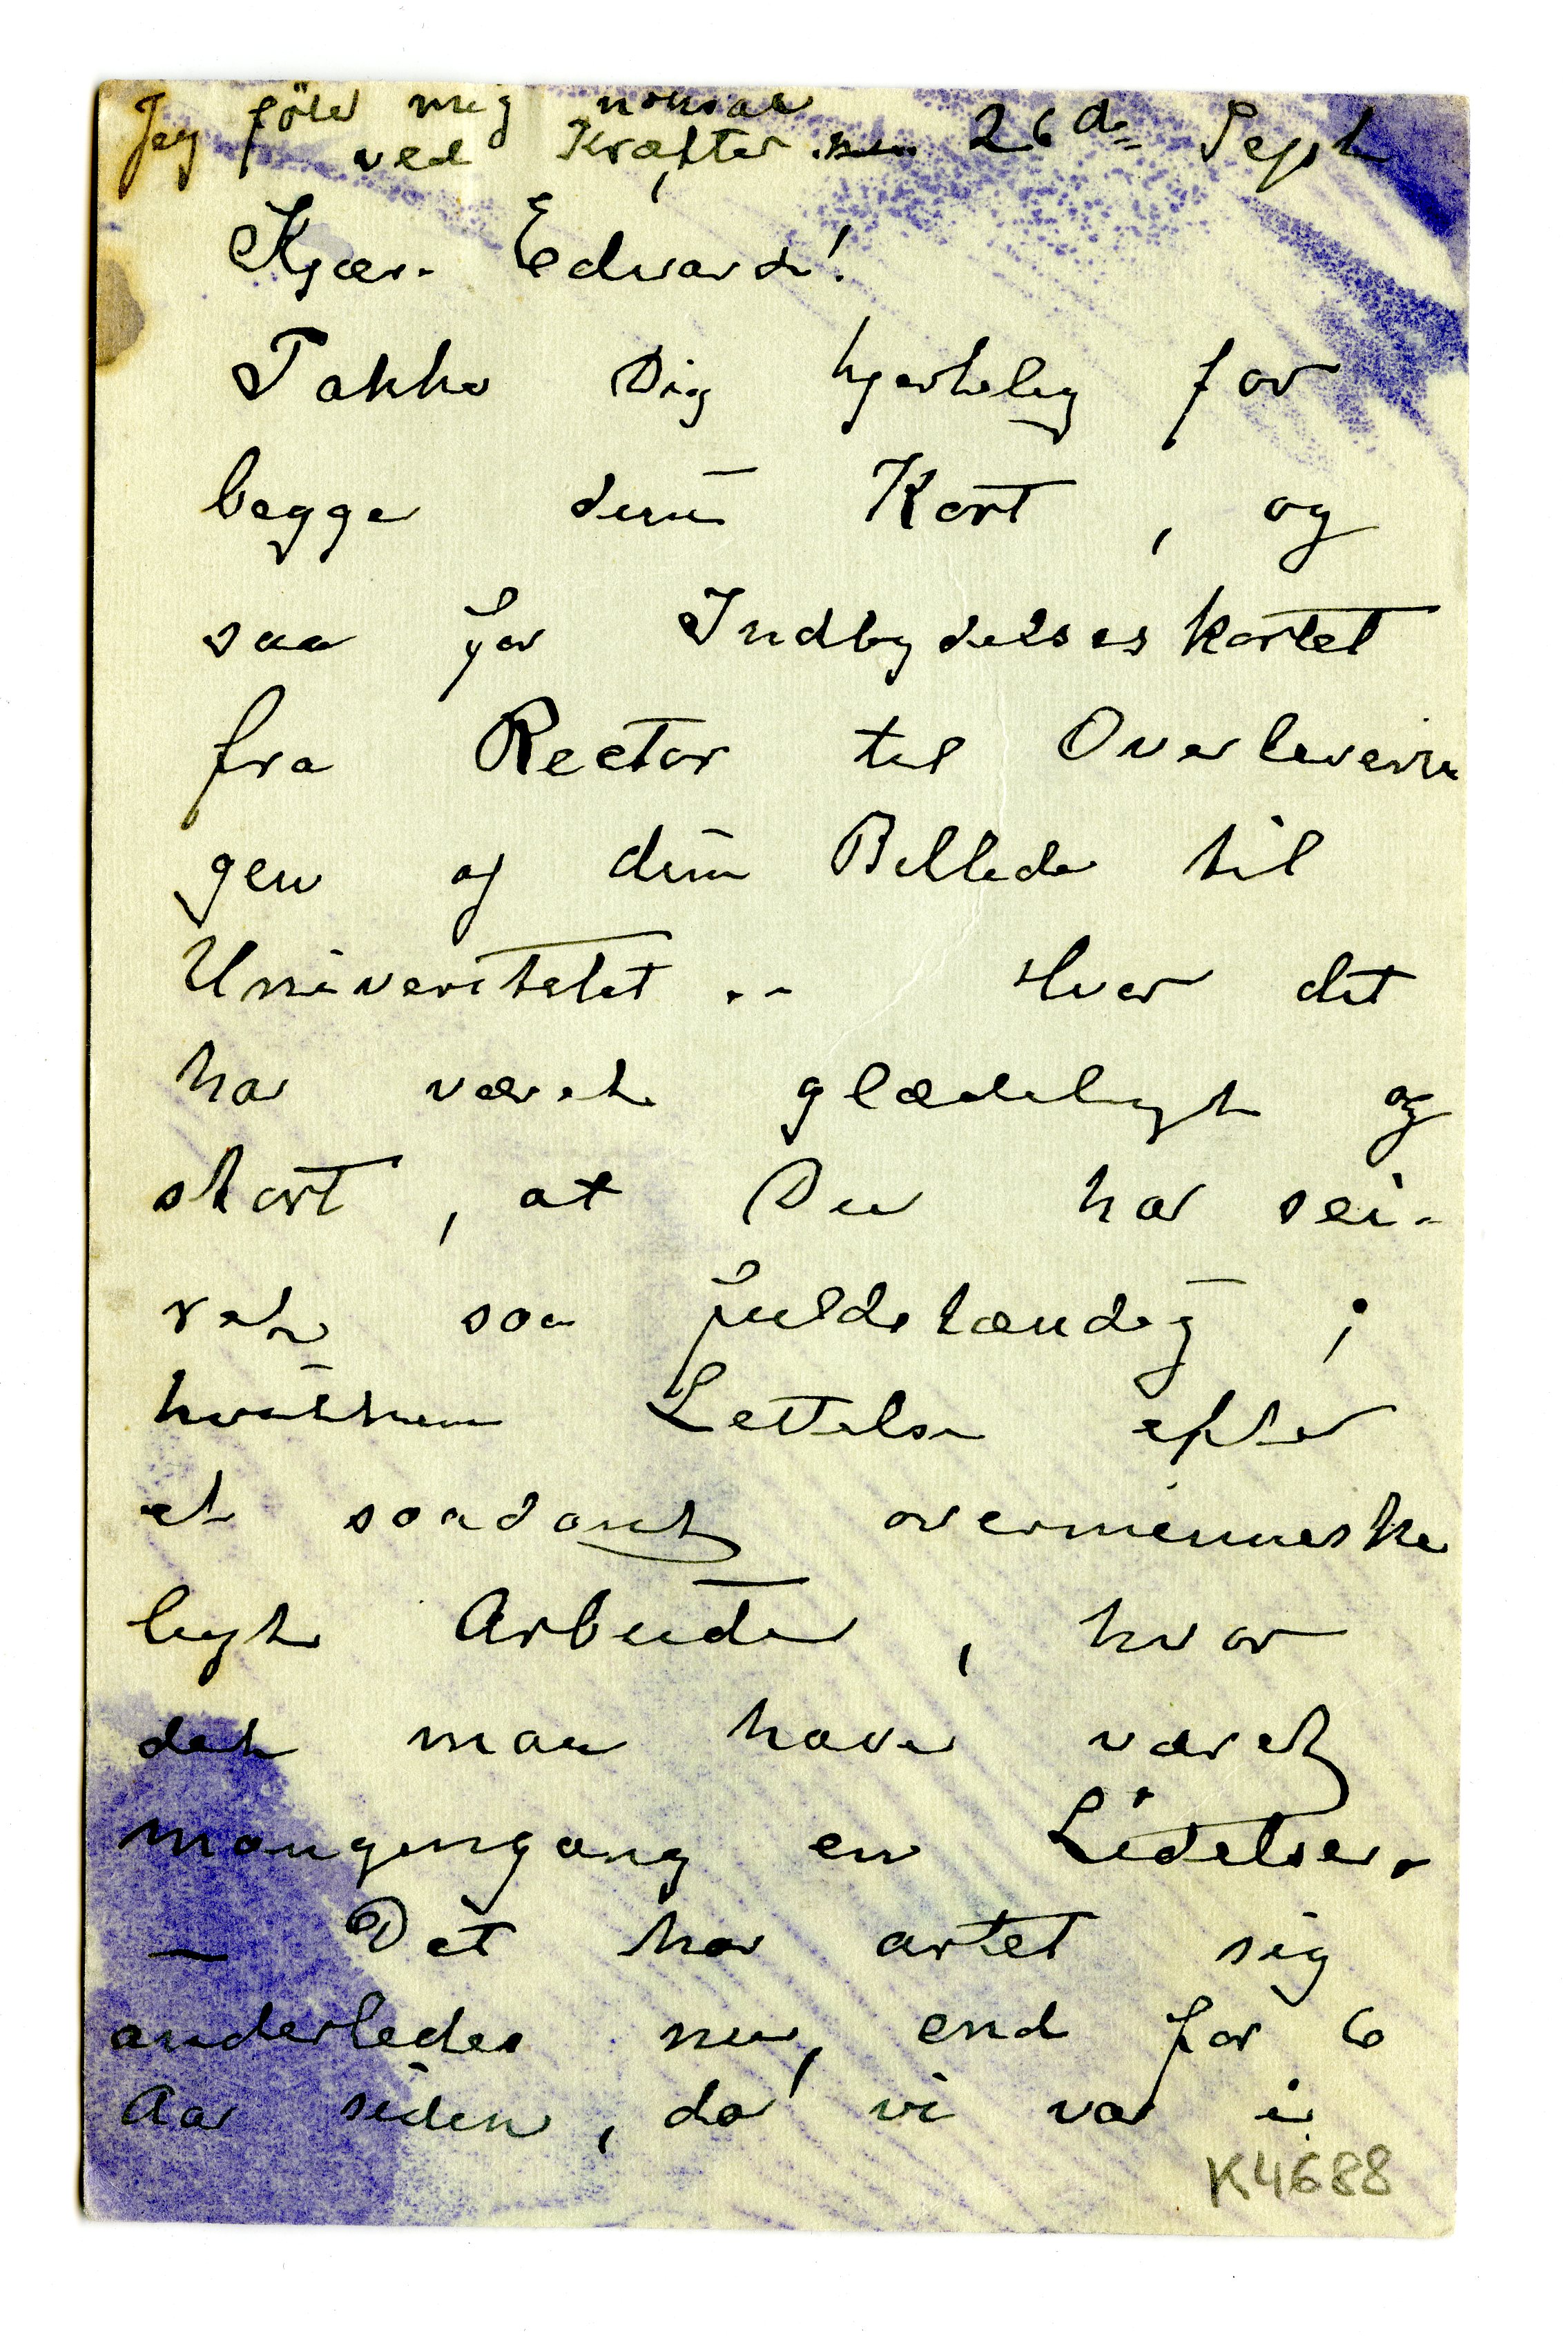 Jeg föler mig normal
ved Kræfter nu 26de Sept
Kjære Edvard!
Takke Dig hjertelig for
begge dine Kort, og
saa for Indbydelseskortet
fra Rector til Overleverin
gen af dine Billede til
Universitetet .- Hvor det
har været glædeligt og
stort, at Du har sei-
ret saa fuldstændig;
hvilken Lettelse efter
et saadant overmenneske
ligt Arbeide, hvor
det maa have været
mangengang en Lidelse.
— Det har artet sig
anderledes nu, end for 6
Aar siden, da vi var i
K4688